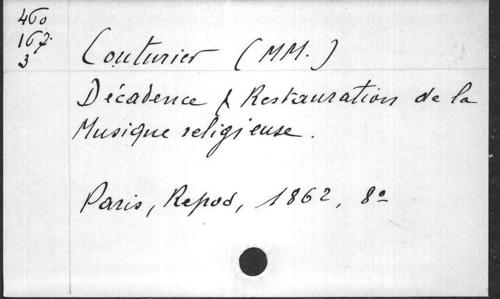 460
167.
3
Couturier (MM.)
Décadence & Restauration de la
Musique religieuse.
Paris, Repos, 1862, 8º